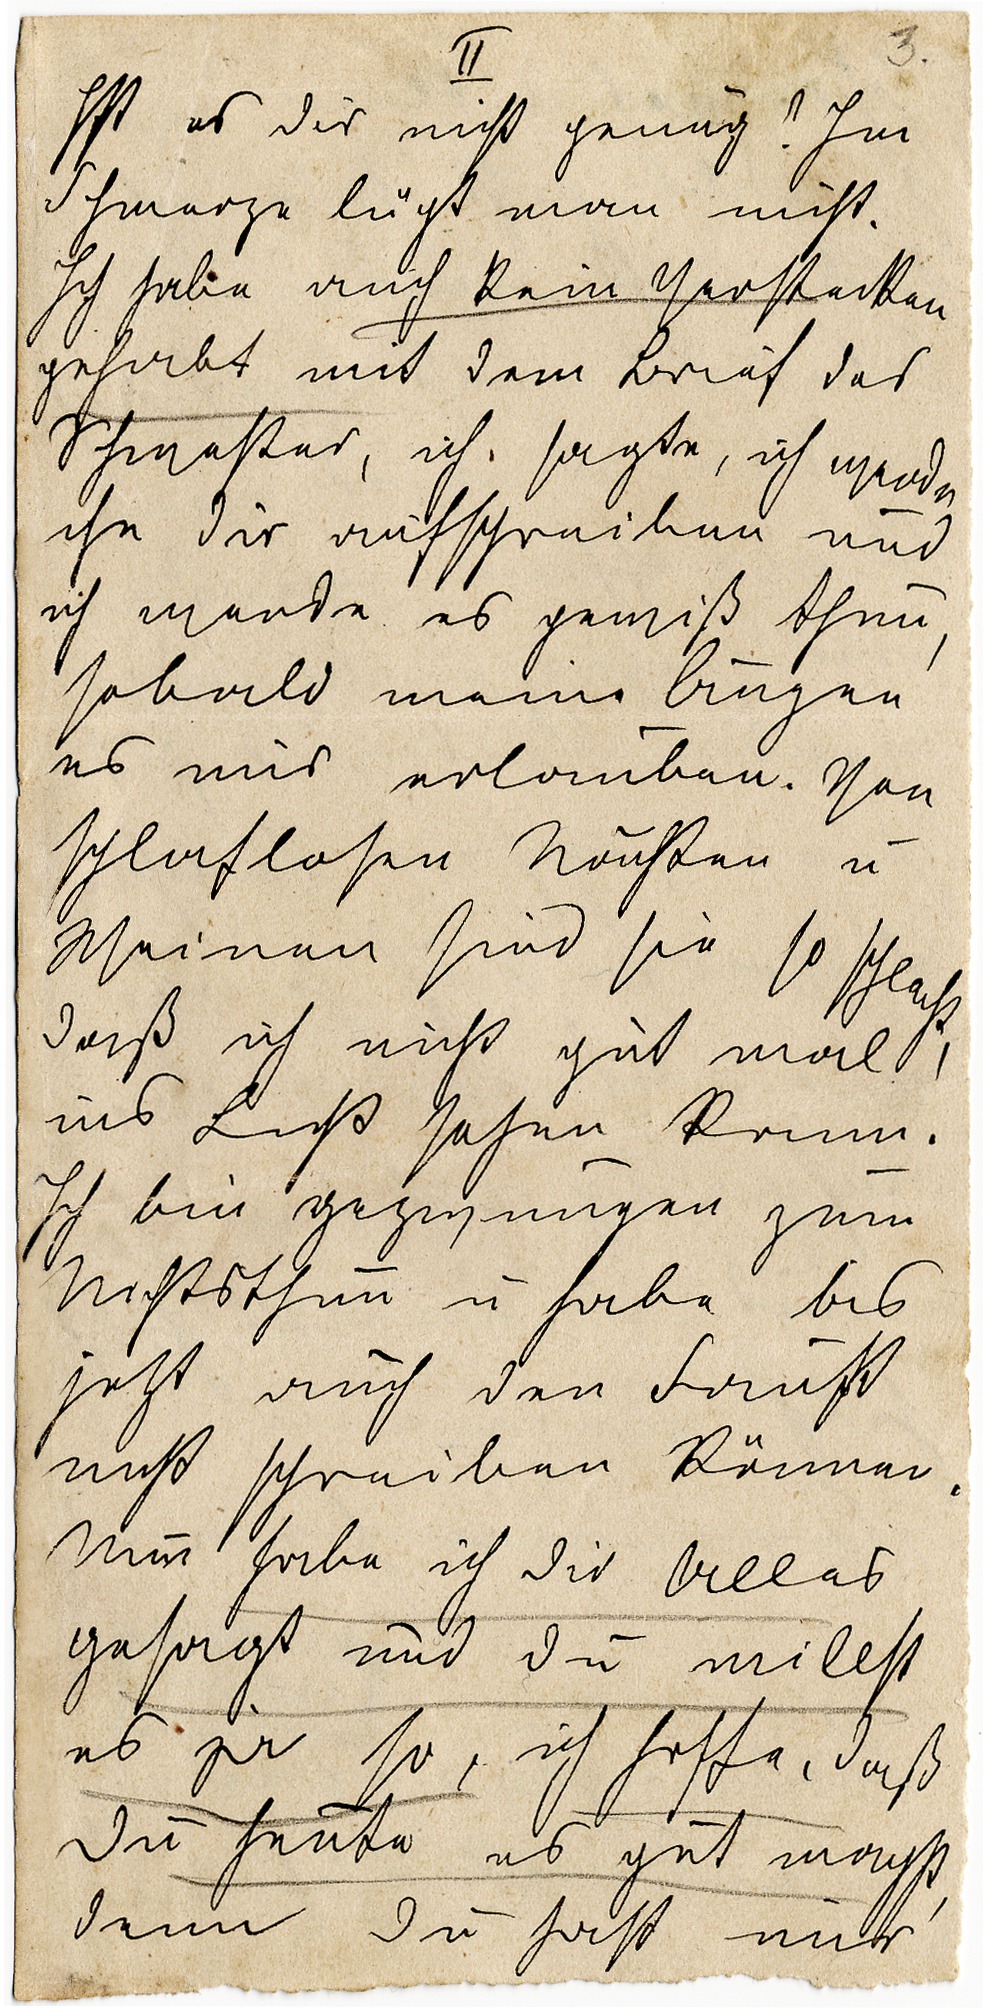 II 3.
Ist es dir nicht genug? Im
Schmerze lügt man nicht.
Ich habe auch kein Verstecken
gehabt mit dem Brief der
Schwester, ich sagte, ich werde
ihn dir aufschreiben und
ich werde es gewiß thun,
sobald meine Augen
es mir erlauben. Von
schlaflosen Nächten u
Weinen sind sie so schlecht,
daß ich nicht gut mal
ins Licht sehen kann.
Ich bin gezwungen zum
Nichtsthun u habe bis
jetzt auch den Faust
nicht schreiben können.
Nun habe ich dir Alles
gesagt und du willst
es ja so, ich hoffe, daß
du heute es gut machst,
denn du hast mir